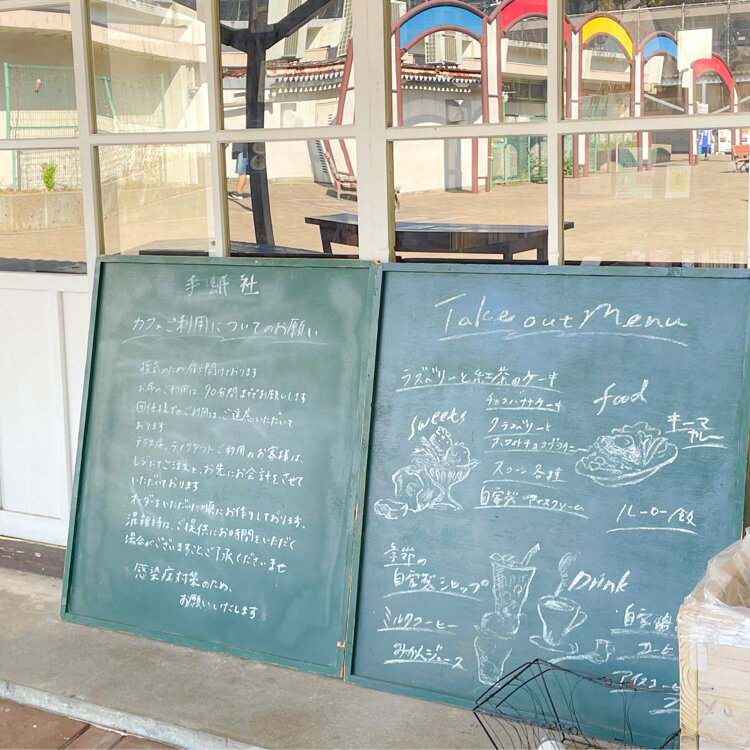 手紙社
カフェご利用についてのお願い
換気のため扉を開けております
お席のご利用は90分間までお願いします
団体様でのご利用は、ご遠慮いただいて
おります
テラス席、テイクアウトご利用のお客様は、
レジにてご注文、お先にお会計をさせて
いただいております
オーダーをいただいた順にお作りしております。
混雑時は、ご提供にお時間をいただく
場合がございますことご了承くださいませ
感染症対策のため、
お願いいたします
Take out Menu
ラズベリーと紅茶のケーキ
チョコバナナケーキ
クランベリーと
ホワイトチョコブラウニー
スコーン各種
自家製アイスクリーム
sweets
food
キーマ
カレー
ルーロー飯
季節の
自家製シロップ
ミルクコーヒー
みかんジュース
Drink
自家焙
コーヒー
アイスコーヒー